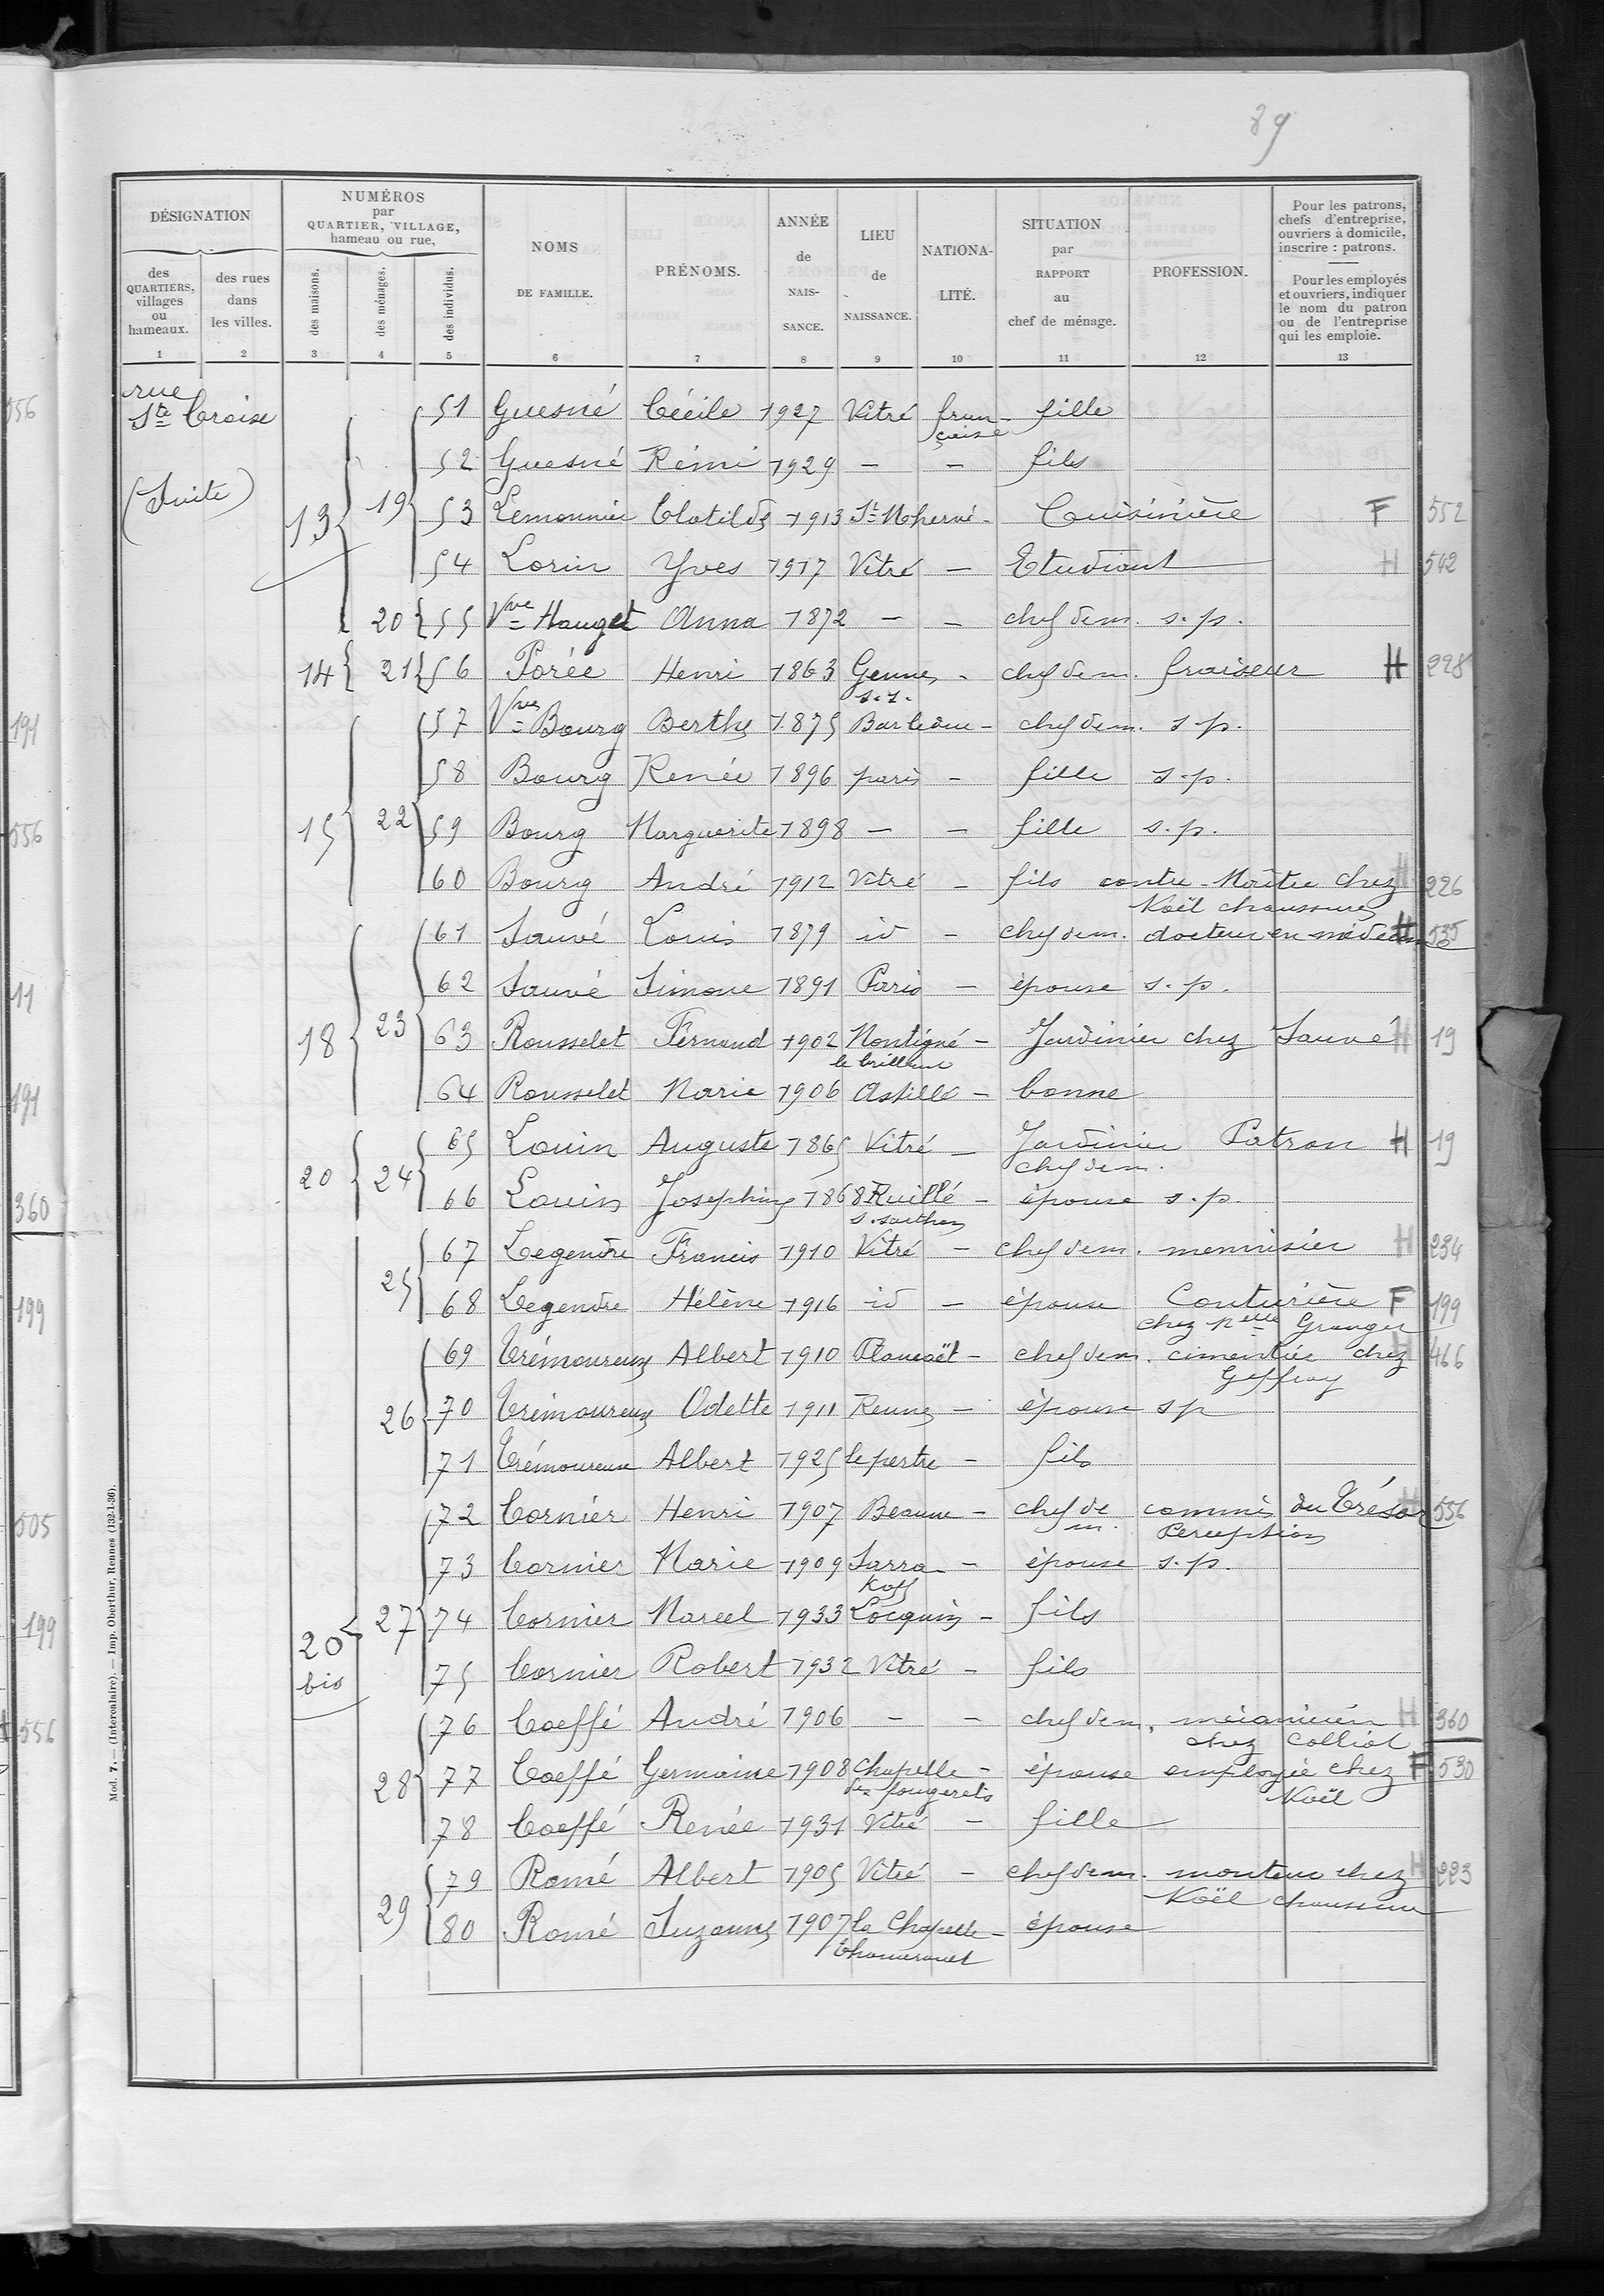 89
DÉSIGNATION
NUMÉROS
par
QUARTIER, VILLAGE,
hameau ou rue,
NOMS
DE FAMILLE.
PRÉNOMS.
ANNÉE
de
NAIS-
SANCE.
LIEU
de
NAISSANCE.
NATIONA-
LITÉ.
SITUATION
par
RAPPORT
au
chef de ménage.
PROFESSION.
Pour les patrons,
chefs d'entreprise,
ouvriers à domicile,
inscrire : patrons.
Pour les employés
et ouvriers, indiquer
le nom du patron
ou de l'entreprise
qui les emploie.
des
QUARTIERS,
villages
ou
hameaux.
des rues
dans
les villes.
des maisons.
des ménages.
des individus.
1 2 3 4 5 6 7 8 9 10 11 12 13
rue
Ste Croix
(Suite)
51 Guesné Cécile 1927 Vitré fran- fille
çaise
52 Guesné Rémi 1929 - - fils
13 19 53 Lemonnier Clotilde 1913 St M'hervé - Cuisinière F 552
54 Lorin Yves 1917 Vitré - Etudiant H 542
20 55 Vve Hauget Anna 1872 - - chef dem. s.p.
14 21 56 Porée Henri 1863 Gennes - chef dem. fraiseur H 228
s.s.
57 Vve Bourg Berthe 1875 Barleduc - chef dem. s.p.
58 Bourg Renée 1896 paris - fille s.p.
15 22 59 Bourg Marguerite 1898 - - fille s.p.
60 Bourg André 1912 Vitré - fils contre-Maître chez H 226
Noël chaussures
61 Sauvé Louis 1879 id - chef dem. docteur en médecine H 535
62 Sauvé Simone 1891 Paris - épouse s.p.
18 23 63 Rousselet Fernand 1902 Montigné - Jardinier chez Sauvé H 19
le brillant
64 Rousselet Marie 1906 Astillé - bonne
65 Louin Auguste 1865 Vitré - Jardinier Patron H 19
chef dem.
20 24 66 Louin Josephine 1868 Ruillé - épouse s.p.
s. sarthe
67 Legendre Francis 1910 Vitré - chef dem. menuisier H 234
25 68 Legendre Hélène 1916 id - épouse Couturière F 199
chez Melle Granger
69 Trémoureux Albert 1910 Plancoët - chef dem. cimentier chez 466
Geffray
26 70 Trémoureux Odette 1911 Rennes - épouse sp
71 Trémoureux Albert 1925 le pertre - fils
72 Cornier Henri 1907 Beaune - chef de commis du Trésor 556
m. Perception
73 Cornier Marie 1909 Sarra- - épouse s.p.
20 bis 27 74 Cornier Marcel 1933 Locquin - fils
75 Cornier Robert 1932 Vitré - fils
76 Coeffé André 1906 - - chef dem. mécanicien H 360
chez Colliot
28 77 Coeffé Germaine 1908 Chapelle - épouse employée chez F 530
des fougerets Noël
78 Coeffé Renée 1931 Vitré - fille
79 Romé Albert 1905 Vitré - chef dem. monteur chez H 223
Noël chaussures
29 80 Romé Suzanne 1907 la Chapelle - épouse
Mod. 7. — (Intercalaire). — Imp. Oberthur, Rennes (132-1-36).
556
191
556
11
191
360
199
505
199
556